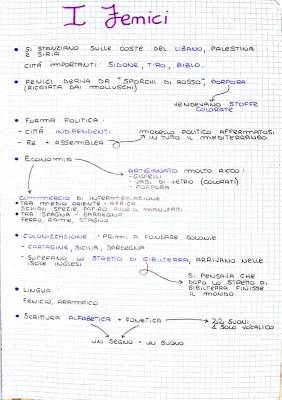 I Fenici
• SI STANZIANO SULLE COSTE DEL LIBANO, PALESTINA
E SIRIA
CITTÀ IMPORTANTI: SIDONE, TIRO, BIBLO.
• FENICI DERIVA DA "SPORCHI DI ROSSO", PORPORA
(RICAVATA DAI MOLLUSCHI)
VENDEVANO STOFFE
COLORATE
• FORMA POLITICA:
- CITTÀ INDIPENDENTI
- RE + ASSEMBLEA
MODELLO POLITICO AFFERMATOSI
IN TUTTO IL MEDITERRANEO
• ECONOMIA
ARTIGIANATO MOLTO RICCO:
- GIOIELLI
- VASI DI VETRO (COLORATI)
- PORPORA
COMMERCIO DI INTERMEDIAZIONE
• TRA MEDIO ORIENTE - AFRICA
SCHIAVI, SPEZIE, PAPIRO, AVORIO, MANUFATTI
• TRA SPAGNA - SARDEGNA
FERRO, RAME, STAGNO
• COLONIZZAZIONE: PRIMI A FONDARE COLONIE
- CARTAGINE, SICILIA, SARDEGNA
- SUPERANO LO STRETTO DI GIBILTERRA, ARRIVANO NELLE
ISOLE INGLESI
SI PENSAVA CHE
DOPO LO STRETTO DI
GIBILTERRA FINISSE
IL MONDO
• LINGUA:
FENICIO, ARAMAICO
• SCRITTURA ALFABETICA + FONETICA
22 SUONI,
1 SOLO VOCALICO
UN SEGNO = UN SUONO